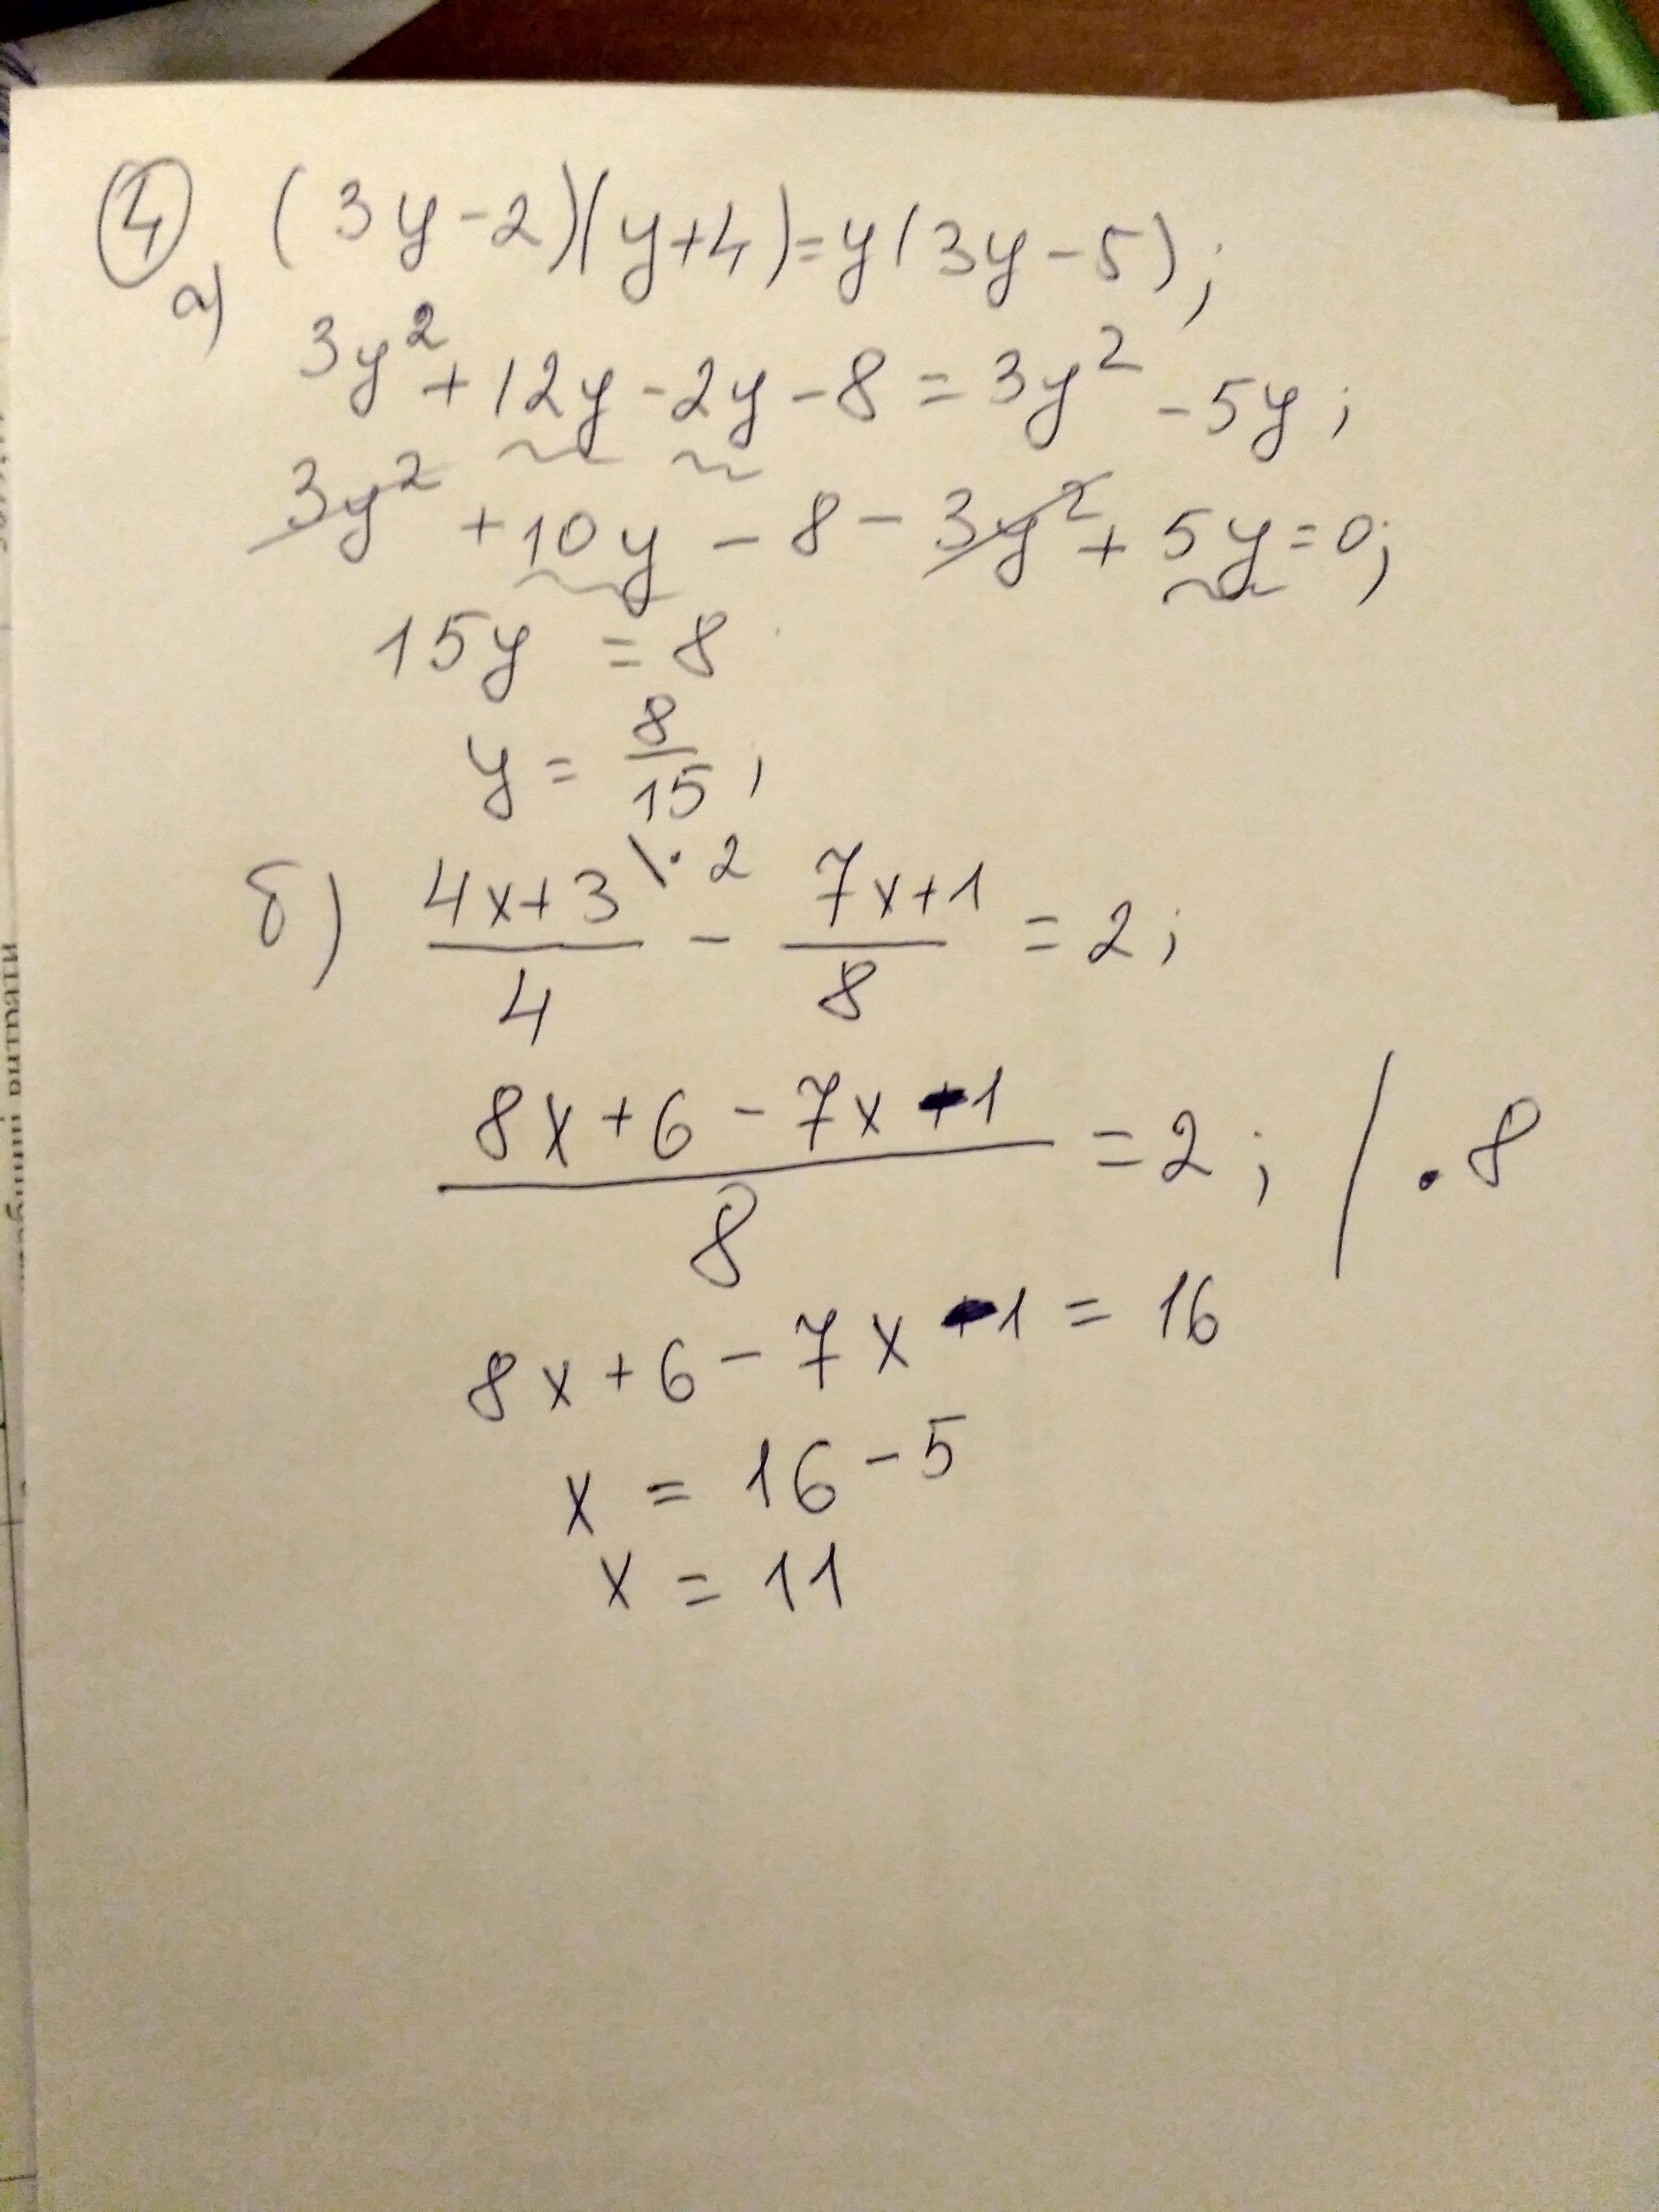 ④ (3y-2)(y+4)=y(3y-5);
а)
3y²+12y-2y-8=3y²-5y;
3y²+10y-8-3y²+5y=0;
15y=8
y=8/15;
б) (4x+3)/4 \·2 - (7x+1)/8 = 2;
(8x+6-7x-1)/8 = 2; / ·8
8x+6-7x-1=16
x=16-5
x=11